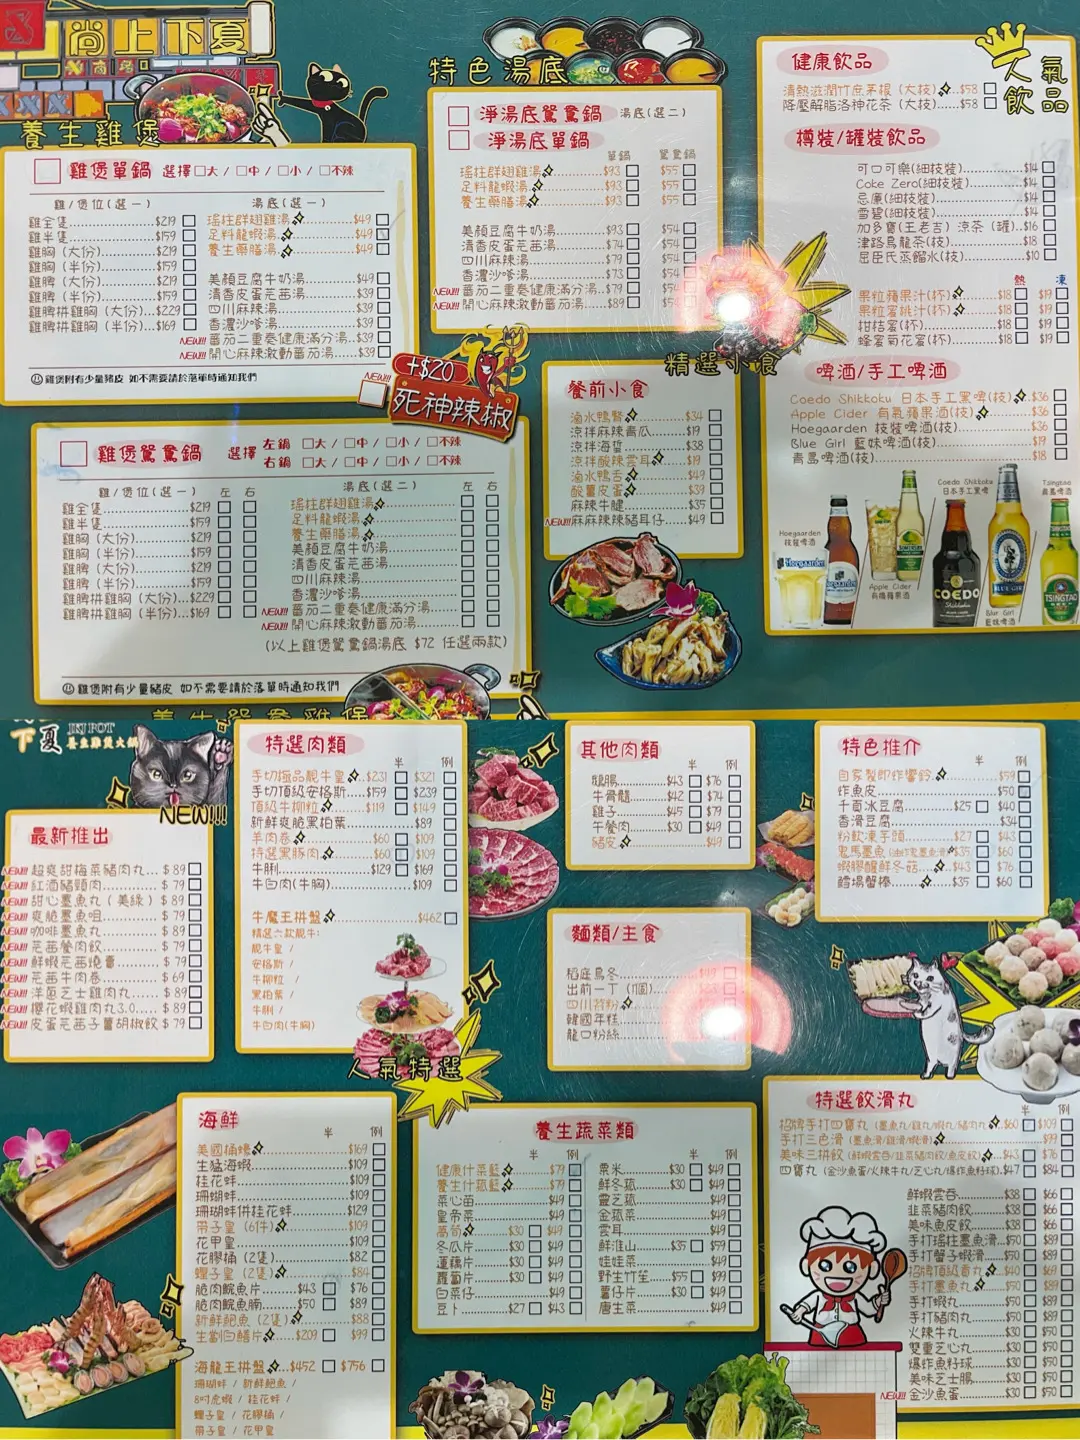 尚上下夏
養生雞煲
雞煲單鍋 選擇 □大 / □中 / □小 / □不辣
雞/煲位(選一)
雞全隻 $219
雞半隻 $159
雞胸 (大份) $219
雞胸 (半份) $159
雞脾 (大份) $219
雞脾 (半份) $159
雞脾拼雞胸 (大份) $229
雞脾拼雞胸 (半份) $169
湯底(選一)
瑤柱群翅雞湯 $49
足料龍蝦湯 $49
養生藥膳湯 $49
美顏豆腐牛奶湯 $49
清香皮蛋芫茜湯 $39
四川麻辣湯 $39
香濃沙嗲湯 $39
NEW!!! 蕃茄二重奏健康滿分湯 $39
NEW!!! 開心麻辣激動蕃茄湯 $39
雞煲附有少量豬皮 如不需要請於落單時通知我們
NEW!!! +$20
死神辣椒
雞煲鴛鴦鍋 選擇
左鍋 □大 / □中 / □小 / □不辣
右鍋 □大 / □中 / □小 / □不辣
雞/煲位(選一) 左 右
雞全隻 $219
雞半隻 $159
雞胸 (大份) $219
雞胸 (半份) $159
雞脾 (大份) $219
雞脾 (半份) $159
雞脾拼雞胸 (大份) $229
雞脾拼雞胸 (半份) $169
湯底(選二) 左 右
瑤柱群翅雞湯
足料龍蝦湯
養生藥膳湯
美顏豆腐牛奶湯
清香皮蛋芫茜湯
四川麻辣湯
香濃沙嗲湯
NEW!!! 蕃茄二重奏健康滿分湯
NEW!!! 開心麻辣激動蕃茄湯
(以上雞煲鴛鴦鍋湯底 $72 任選兩款)
雞煲附有少量豬皮 如不需要請於落單時通知我們
特色湯底
淨湯底鴛鴦鍋 湯底(選二)
淨湯底單鍋
單鍋 鴛鴦鍋
瑤柱群翅雞湯 $93 $55
足料龍蝦湯 $93 $55
養生藥膳湯 $93 $55
美顏豆腐牛奶湯 $93 $54
清香皮蛋芫茜湯 $74 $54
四川麻辣湯 $79 $54
香濃沙嗲湯 $73 $54
NEW!!! 蕃茄二重奏健康滿分湯 $79 $54
NEW!!! 開心麻辣激動蕃茄湯 $89
精選小食
餐前小食
滷水鴨腎 $34
涼拌麻辣青瓜 $19
涼拌海蜇 $38
涼拌酸辣雲耳 $19
滷水鴨舌 $49
酸薑皮蛋 $39
麻辣牛𦟌 $35
NEW!!! 麻麻辣辣豬耳仔 $49
人氣飲品
健康飲品
清熱滋潤竹庶茅根 (大枝) $58
降壓解脂洛神花茶 (大枝) $58
樽裝/罐裝飲品
可口可樂(細枝裝) $14
Coke Zero(細枝裝) $14
忌廉(細枝裝) $14
雪碧(細枝裝) $14
加多寶(王老吉) 涼茶 (罐) $16
津路烏龍茶(枝) $18
屈臣氏蒸餾水(枝) $10
熱 凍
果粒蘋果汁(杯) $18 $19
果粒蜜桃汁(杯) $18 $19
柑桔蜜(杯) $18 $19
蜂蜜菊花蜜(杯) $18 $19
啤酒/手工啤酒
Coedo Shikkoku 日本手工黑啤(枝) $36
Apple Cider 有氣蘋果酒(枝) $36
Hoegaarden 枝裝啤酒(枝) $36
Blue Girl 藍妹啤酒(枝) $19
青島啤酒(枝) $18
Hoegaarden 枝裝啤酒
Apple Cider 有氣蘋果酒
Coedo Shikkoku 日本手工黑啤
Blue Girl 藍妹啤酒
Tsingtao 青島啤酒
Hoegaarden
COEDO
Shikkoku
BLUE GIRL
TSINGTAO
下夏 POT
養生雞煲火鍋
NEW!!!
最新推出
NEW!!! 超爽甜梅菜豬肉丸 $89
NEW!!! 紅酒豬頸肉 $79
NEW!!! 甜心墨魚丸 (美綠) $89
NEW!!! 爽脆墨魚咀 $79
NEW!!! 咖啡墨魚丸 $89
NEW!!! 芫茜餐肉餃 $79
NEW!!! 鮮蝦芫茜燒賣 $79
NEW!!! 芫茜牛肉卷 $69
NEW!!! 洋蔥芝士雞肉丸 $89
NEW!!! 櫻花蝦雞肉丸3.0 $89
NEW!!! 皮蛋芫茜子薑胡椒餃 $79
特選肉類
半 例
手切極品靚牛皇 $231 $321
手切頂級安格斯 $159 $239
頂級牛柳粒 $119 $149
新鮮爽脆黑柏葉 $89
羊肉卷 $60 $109
特選黑豚肉 $60 $109
牛脷 $129 $169
牛白肉(牛胸) $109
牛魔王拼盤 $462
精選六款靚牛:
靚牛皇 /
安格斯 /
牛柳粒 /
黑柏葉 /
牛脷 /
牛白肉(牛胸)
人氣特選
其他肉類
半 例
鵝腸 $43 $76
牛骨髓 $42 $74
雞子 $45 $79
午餐肉 $30 $49
豬皮 $49
麵類/主食
稻庭烏冬
出前一丁 (1個)
四川苕粉
韓國年糕
龍口粉絲
特色推介
半 例
自家製即炸響鈴 $59
炸魚皮 $50
千面冰豆腐 $25 $40
香滑豆腐 $34
粉軟凍芋頭 $27 $43
鬼馬墨魚 $35 $60
蝦膠釀鮮冬菇 $43 $76
鱈場蟹棒 $35 $60
海鮮
半 例
美國桶蠔 $169
生猛海蝦 $109
桂花蚌 $109
珊瑚蚌 $109
珊瑚蚌併桂花蚌 $129
帶子皇 (6件) $109
花甲皇 $109
花膠桶 (2隻) $82
蟶子皇 (2隻) $84
脆肉鯇魚片 $43 $76
脆肉鯇魚腩 $50 $89
新鮮鮑魚 (2隻) $88
生劏白鱔片 $209 $99
海龍王拼盤 $452 $756
珊瑚蚌 / 新鮮鮑魚 /
8吋虎蝦 / 桂花蚌 /
蟶子皇 / 花膠桶 /
帶子皇 / 花甲皇
養生蔬菜類
半 例
健康什菜籃 $79
養生什菰籃 $79
菜心苗 $49
皇帝菜 $49
萵筍 $30 $49
冬瓜片 $30 $49
蓮藕片 $30 $49
蘿蔔片 $30 $49
白菜仔 $49
豆卜 $27 $43
半 例
粟米 $30 $49
鮮冬菰 $30 $49
靈芝菰 $49
金菰菜 $49
雲耳 $49
鮮淮山 $35 $59
娃娃菜 $49
野生竹笙 $55 $99
薯仔片 $30 $49
唐生菜 $49
特選餃滑丸
半 例
招牌手打四寶丸 (墨魚丸/雞丸/蝦丸/豬肉丸) $60 $109
手打三色滑 (墨魚滑/雞滑/蝦滑) $99
美味三拼餃 (鮮蝦雲吞/韮菜豬肉餃/魚皮餃) $43 $76
四寶丸 (金沙魚蛋/火辣牛丸/芝心丸/爆炸魚籽球) $47 $84
鮮蝦雲吞 $38 $66
韮菜豬肉餃 $38 $66
美味魚皮餃 $38 $66
手打瑤柱墨魚滑 $50 $89
手打蟹子蝦滑 $50 $89
招牌頂級貢丸 $40 $69
手打墨魚丸 $50 $89
手打蝦丸 $50 $89
手打豬肉丸 $50 $89
火辣牛丸 $30 $50
雙重芝心丸 $30 $50
爆炸魚籽球 $30 $50
美味芝士腸 $30 $50
NEW!!! 金沙魚蛋 $30 $50